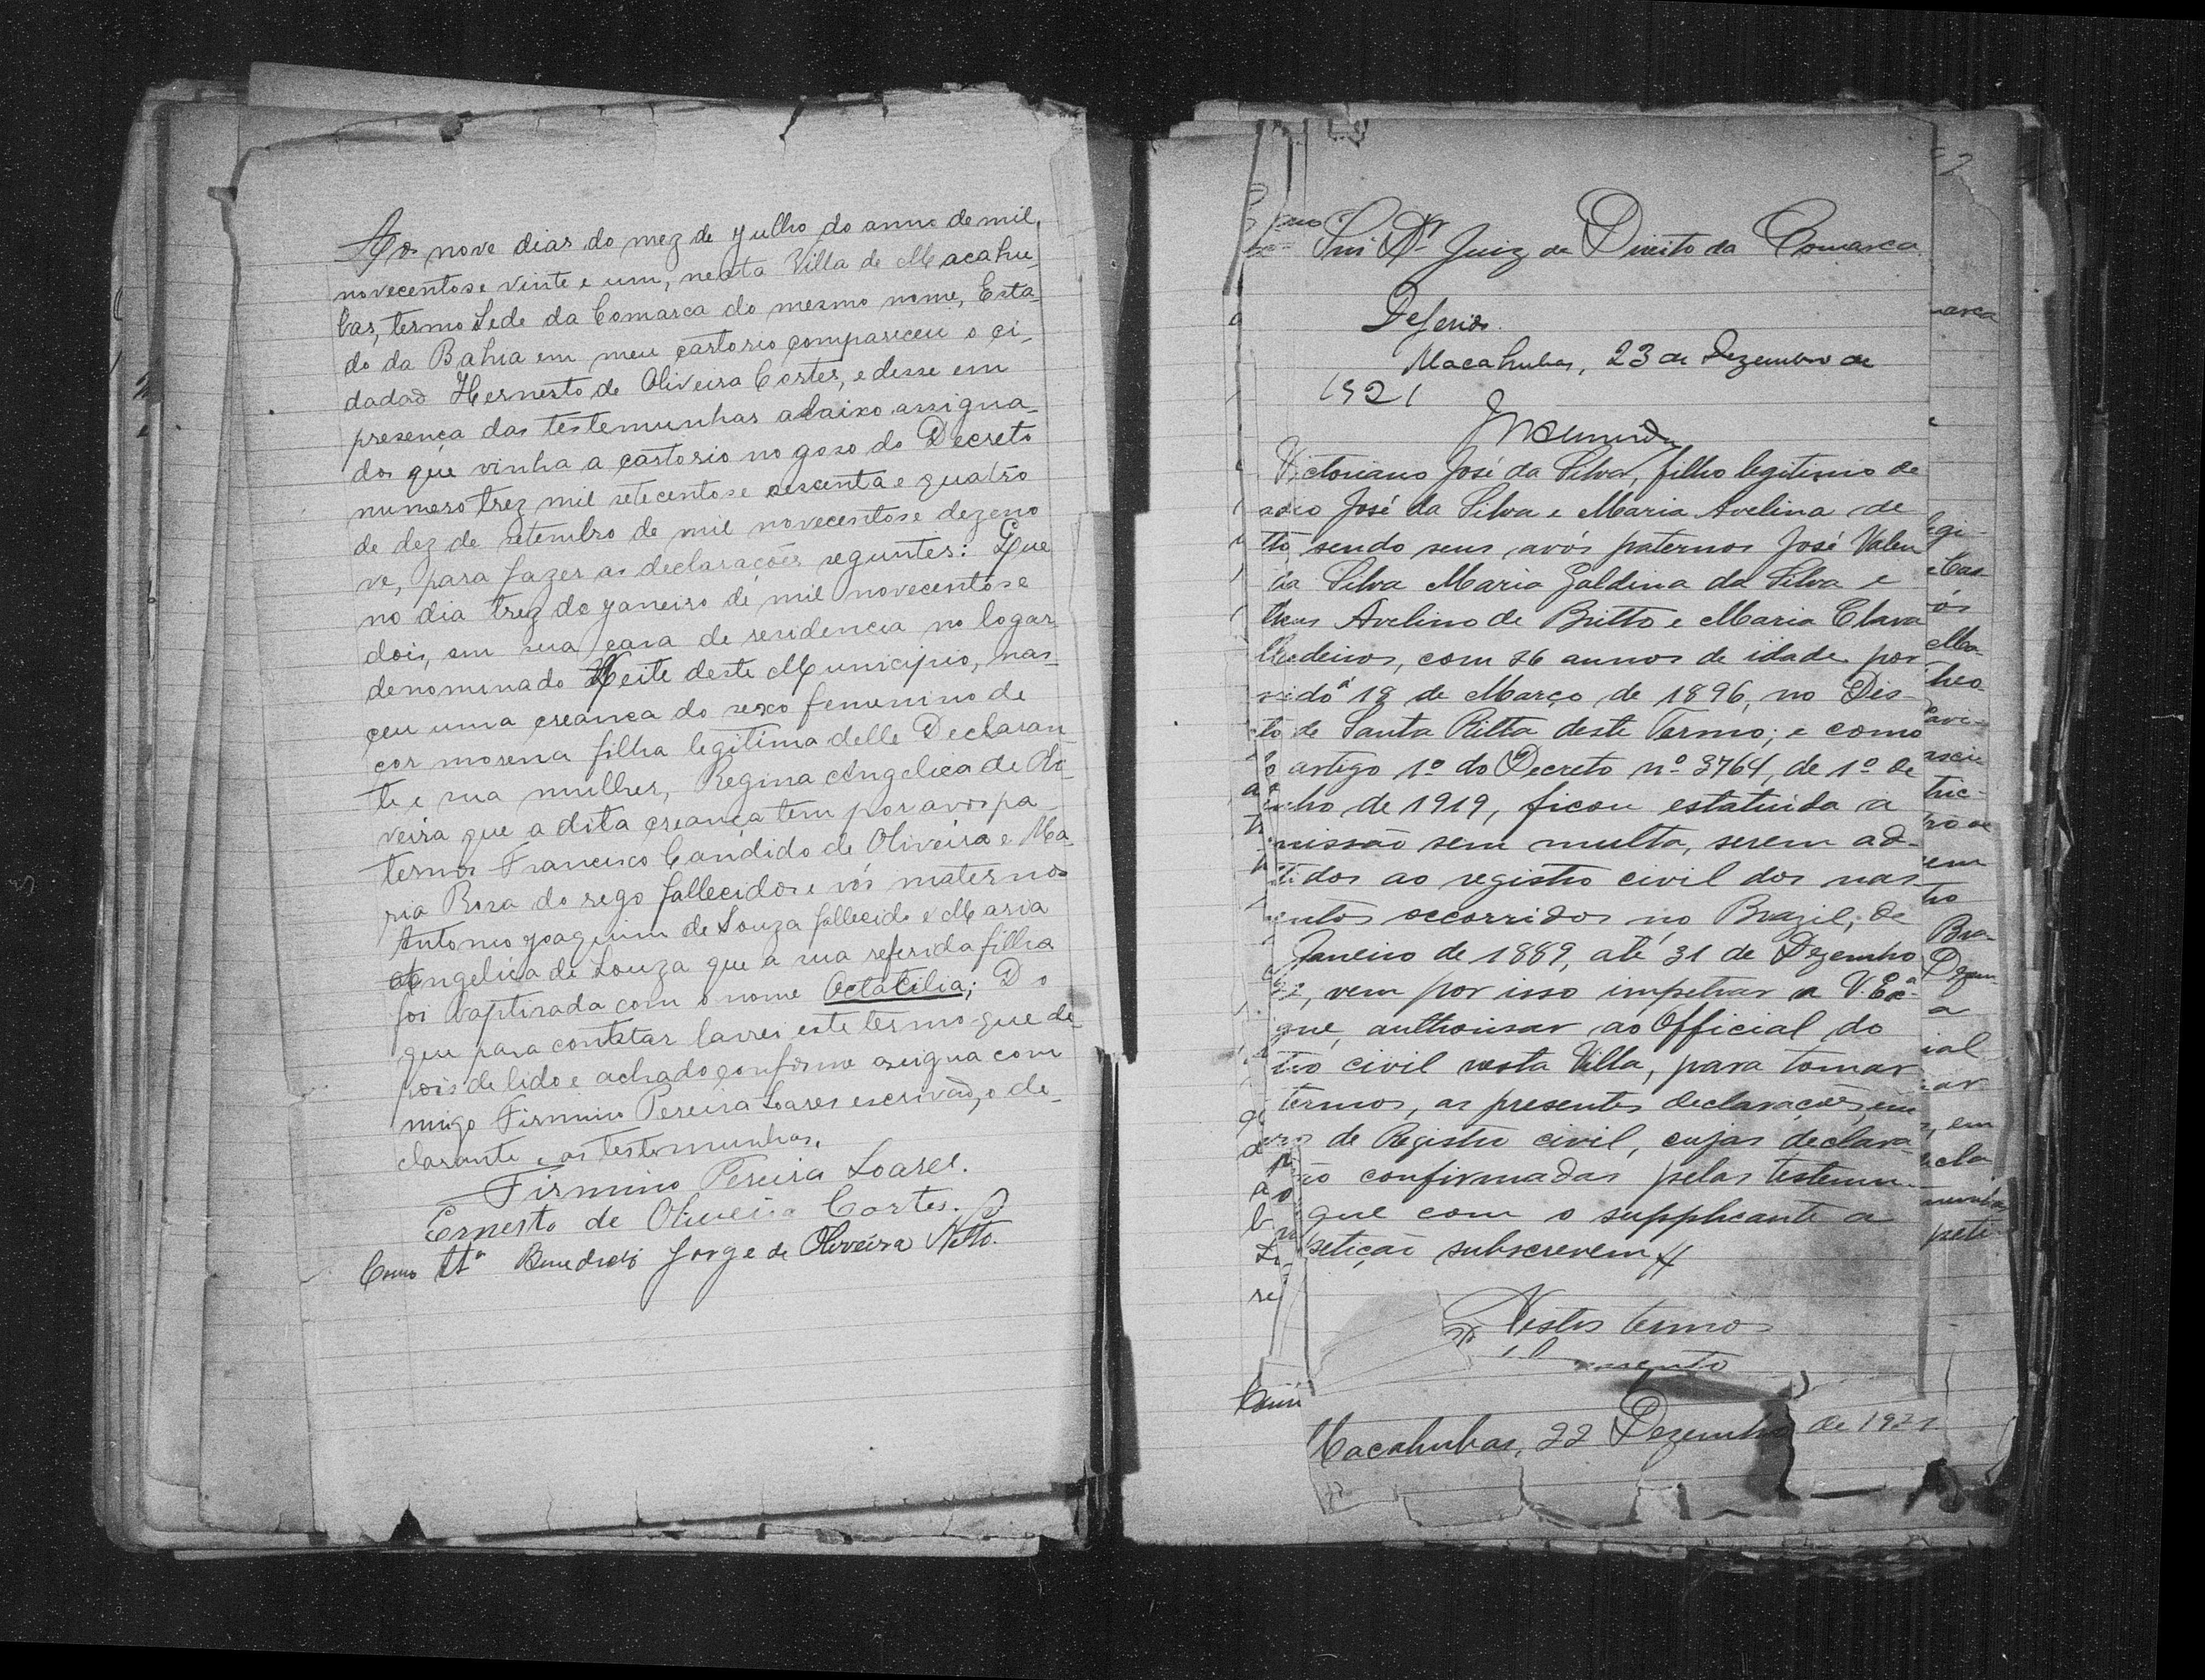 Aos nove dias do mez de julho do anno de mil
novecentos e vinte e um, nesta Villa de Macahu-
bas, termo Sede da Comarca do mesmo nome, Esta-
do da Bahia em meu cartorio compareceu o ci-
dadaõ Hernesto de Oliveira Cortes, e desse em
presença das testemunhas abaixo assigna-
dos que vinha a cartorio no goso do Decreto
numero trez mil setecentos e sescenta e quatro
de dez de setembro de mil novecentos e dezeno
ve, para fazer as declarações seguntes: Que
no dia trez de janeiro de mil novecentos e
dois, em sua casa de residencia no logar
denominado Leite deste Municipio, nas-
ceu uma creança do sexo femenino de
cor morena filha legitima delle Declaran
te e sua mulher, Regina Angelica de Oli-
veira que a dita creança tem por avos pa
ternos Francisco Candido de Oliveira e Ma-
ria Roza do rego fallecidos e vós maternos
Antonio Joaquim de Souza fallecido e Maria
Angelica de Souza que a sua referida filha
foi baptisada com o nome Octacilia; D o
que para contstar lavrei este termo que de-
pois de lido e achado conforme assigna com
migo Firmino Pereira Soares escrivaõ, o de-
clarante e as testemunhas.
Firmino Pereira Soares.
Ernesto de Oliveira Cortes.
Como tta Benedicto Jorge de Oliveira Netto.
Snr Dr Juiz de Direito da Comarca
Deferido.
Macahubas, 23 de Dezembro de
1921
Victoriano José da Silva, filho legitimo de
José da Silva e Maria Avelina de
tto, sendo seus avós paternos José Valen
da Silva Maria Galdina da Silva e
theus Avelino de Britto e Maria Clara
deiros, com 26 annos de idade por
cido á 18 de Março de 1896, no Dis-
to de Santa Ritta deste Termo; e como
o artigo 1º do Decreto nº 3764, de 1º de
nho de 1919, ficou estatuida a
missão sem multa, serem ad-
tidos ao registro civil dos nas-
entos occorridos no Brazil, de
Janeiro de 1889, até 31 de Dezembro
vem por isso impetrar a V. Exª
que, authorisar ao Official do
tro civil nesta Villa, para tomar
termos, as presentes declarações, em
de Registro civil, cujas declara-
ão confirmadas pelas testemu-
que com o supplicante a
petição subscrevem
Nestes termos
Macahubas, 22 Dezembro de 1921